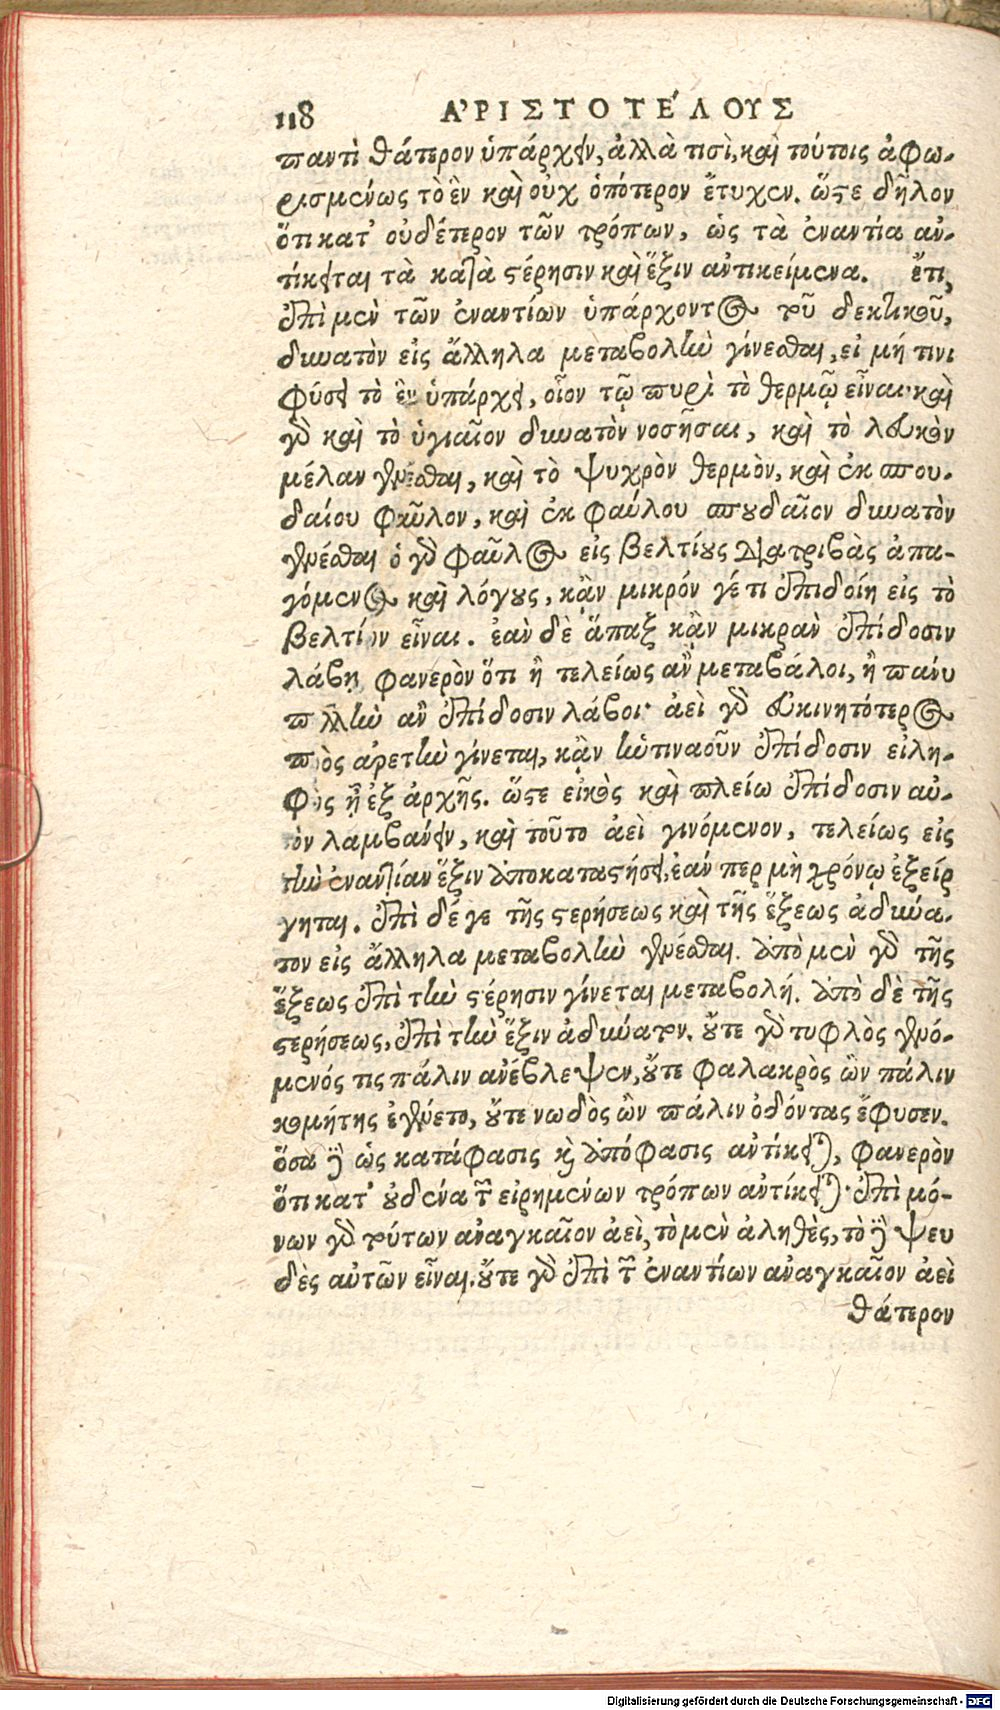 118 ἈΡΙΣΤΟΤΈΛΟΥΣ
παντὶ θάτερον ὑπάρχειν, ἀλλὰ τισὶ, καὶ τούτοις ἀφω-
ρισμένως τὸ ἓν καὶ οὐχ ὁπότερον ἔτυχεν. ὥστε δῆλον
ὅτι κατ' οὐδέτερον τῶν τρόπων, ὡς τὰ ἐναντία ἀν-
τίκειται τὰ κατὰ στέρησιν καὶ ἕξιν ἀντικείμενα. ἔτι,
ἐπὶ μὲν τῶν ἐναντίων ὑπάρχοντος τοῦ δεκτικοῦ,
δυνατὸν εἰς ἄλληλα μεταβολὴν γίνεσθαι, εἰ μή τινι
φύσει τὸ ἓν ὑπάρχει, οἷον τῷ πυρὶ τὸ θερμῷ εἶναι· καὶ
γὰρ καὶ τὸ ὑγιαῖον δυνατὸν νοσῆσαι, καὶ τὸ λευκὸν
μέλαν γενέσθαι, καὶ τὸ ψυχρὸν θερμὸν, καὶ ἐκ σπου-
δαίου φαῦλον, καὶ ἐκ φαύλου σπουδαῖον δυνατὸν
γενέσθαι ὁ γὰρ φαῦλος εἰς βελτίους διατριβὰς ἀπα-
γόμενος καὶ λόγους, κἂν μικρόν γέ τι ἐπιδοίη εἰς τὸ
βελτίων εἶναι. ἐὰν δὲ ἅπαξ κἂν μικρὰν ἐπίδοσιν
λάβῃ, φανερὸν ὅτι ἢ τελείως ἂν μεταβάλοι, ἢ πάνυ
πολλὴν ἂν ἐπίδοσιν λάβοι· ἀεὶ γὰρ εὐκινητότερος
πρὸς ἀρετὴν γίνεται, κἂν ἡντιναοῦν ἐπίδοσιν εἰλη-
φὼς ᾖ ἐξ ἀρχῆς. ὥστε εἰκὸς καὶ πλείω ἐπίδοσιν αὐ-
τὸν λαμβάνειν, καὶ τοῦτο ἀεὶ γινόμενον, τελείως εἰς
τὴν ἐναντίαν ἕξιν ἀποκαταστήσει, ἐάν περ μὴ χρόνῳ ἐξείρ
γηται. ἐπὶ δέ γε τῆς στερήσεως καὶ τῆς ἕξεως ἀδύνα-
τον εἰς ἄλληλα μεταβολὴν γενέσθαι. ἀπὸ μὲν γὰρ τῆς
ἕξεως ἐπὶ τὴν στέρησιν γίνεται μεταβολή. ἀπὸ δὲ τῆς
στερήσεως, ἐπὶ τὴν ἕξιν ἀδύνατον. οὔτε γὰρ τυφλὸς γενό-
μενός τις πάλιν ἀνέβλεψεν, οὔτε φαλακρὸς ὢν πάλιν
κομήτης ἐγένετο, οὔτε νωδὸς ὢν πάλιν ὀδόντας ἔφυσεν.
ὅσα δὲ ὡς κατάφασις καὶ ἀπόφασις ἀντίκειται, φανερὸν
ὅτι κατ' οὐδένα τῶν εἰρημένων τρόπων ἀντίκειται· ἐπὶ μό-
νων γὰρ τούτων ἀναγκαῖον ἀεὶ, τὸ μὲν ἀληθὲς, τὸ δὲ ψευ
δὲς αὐτῶν εἶναι. οὔτε γὰρ ἐπὶ τῶν ἐναντίων ἀναγκαῖον ἀεὶ
θάτερον
Digitalisierung gefördert durch die Deutsche Forschungsgemeinschaft - DFG